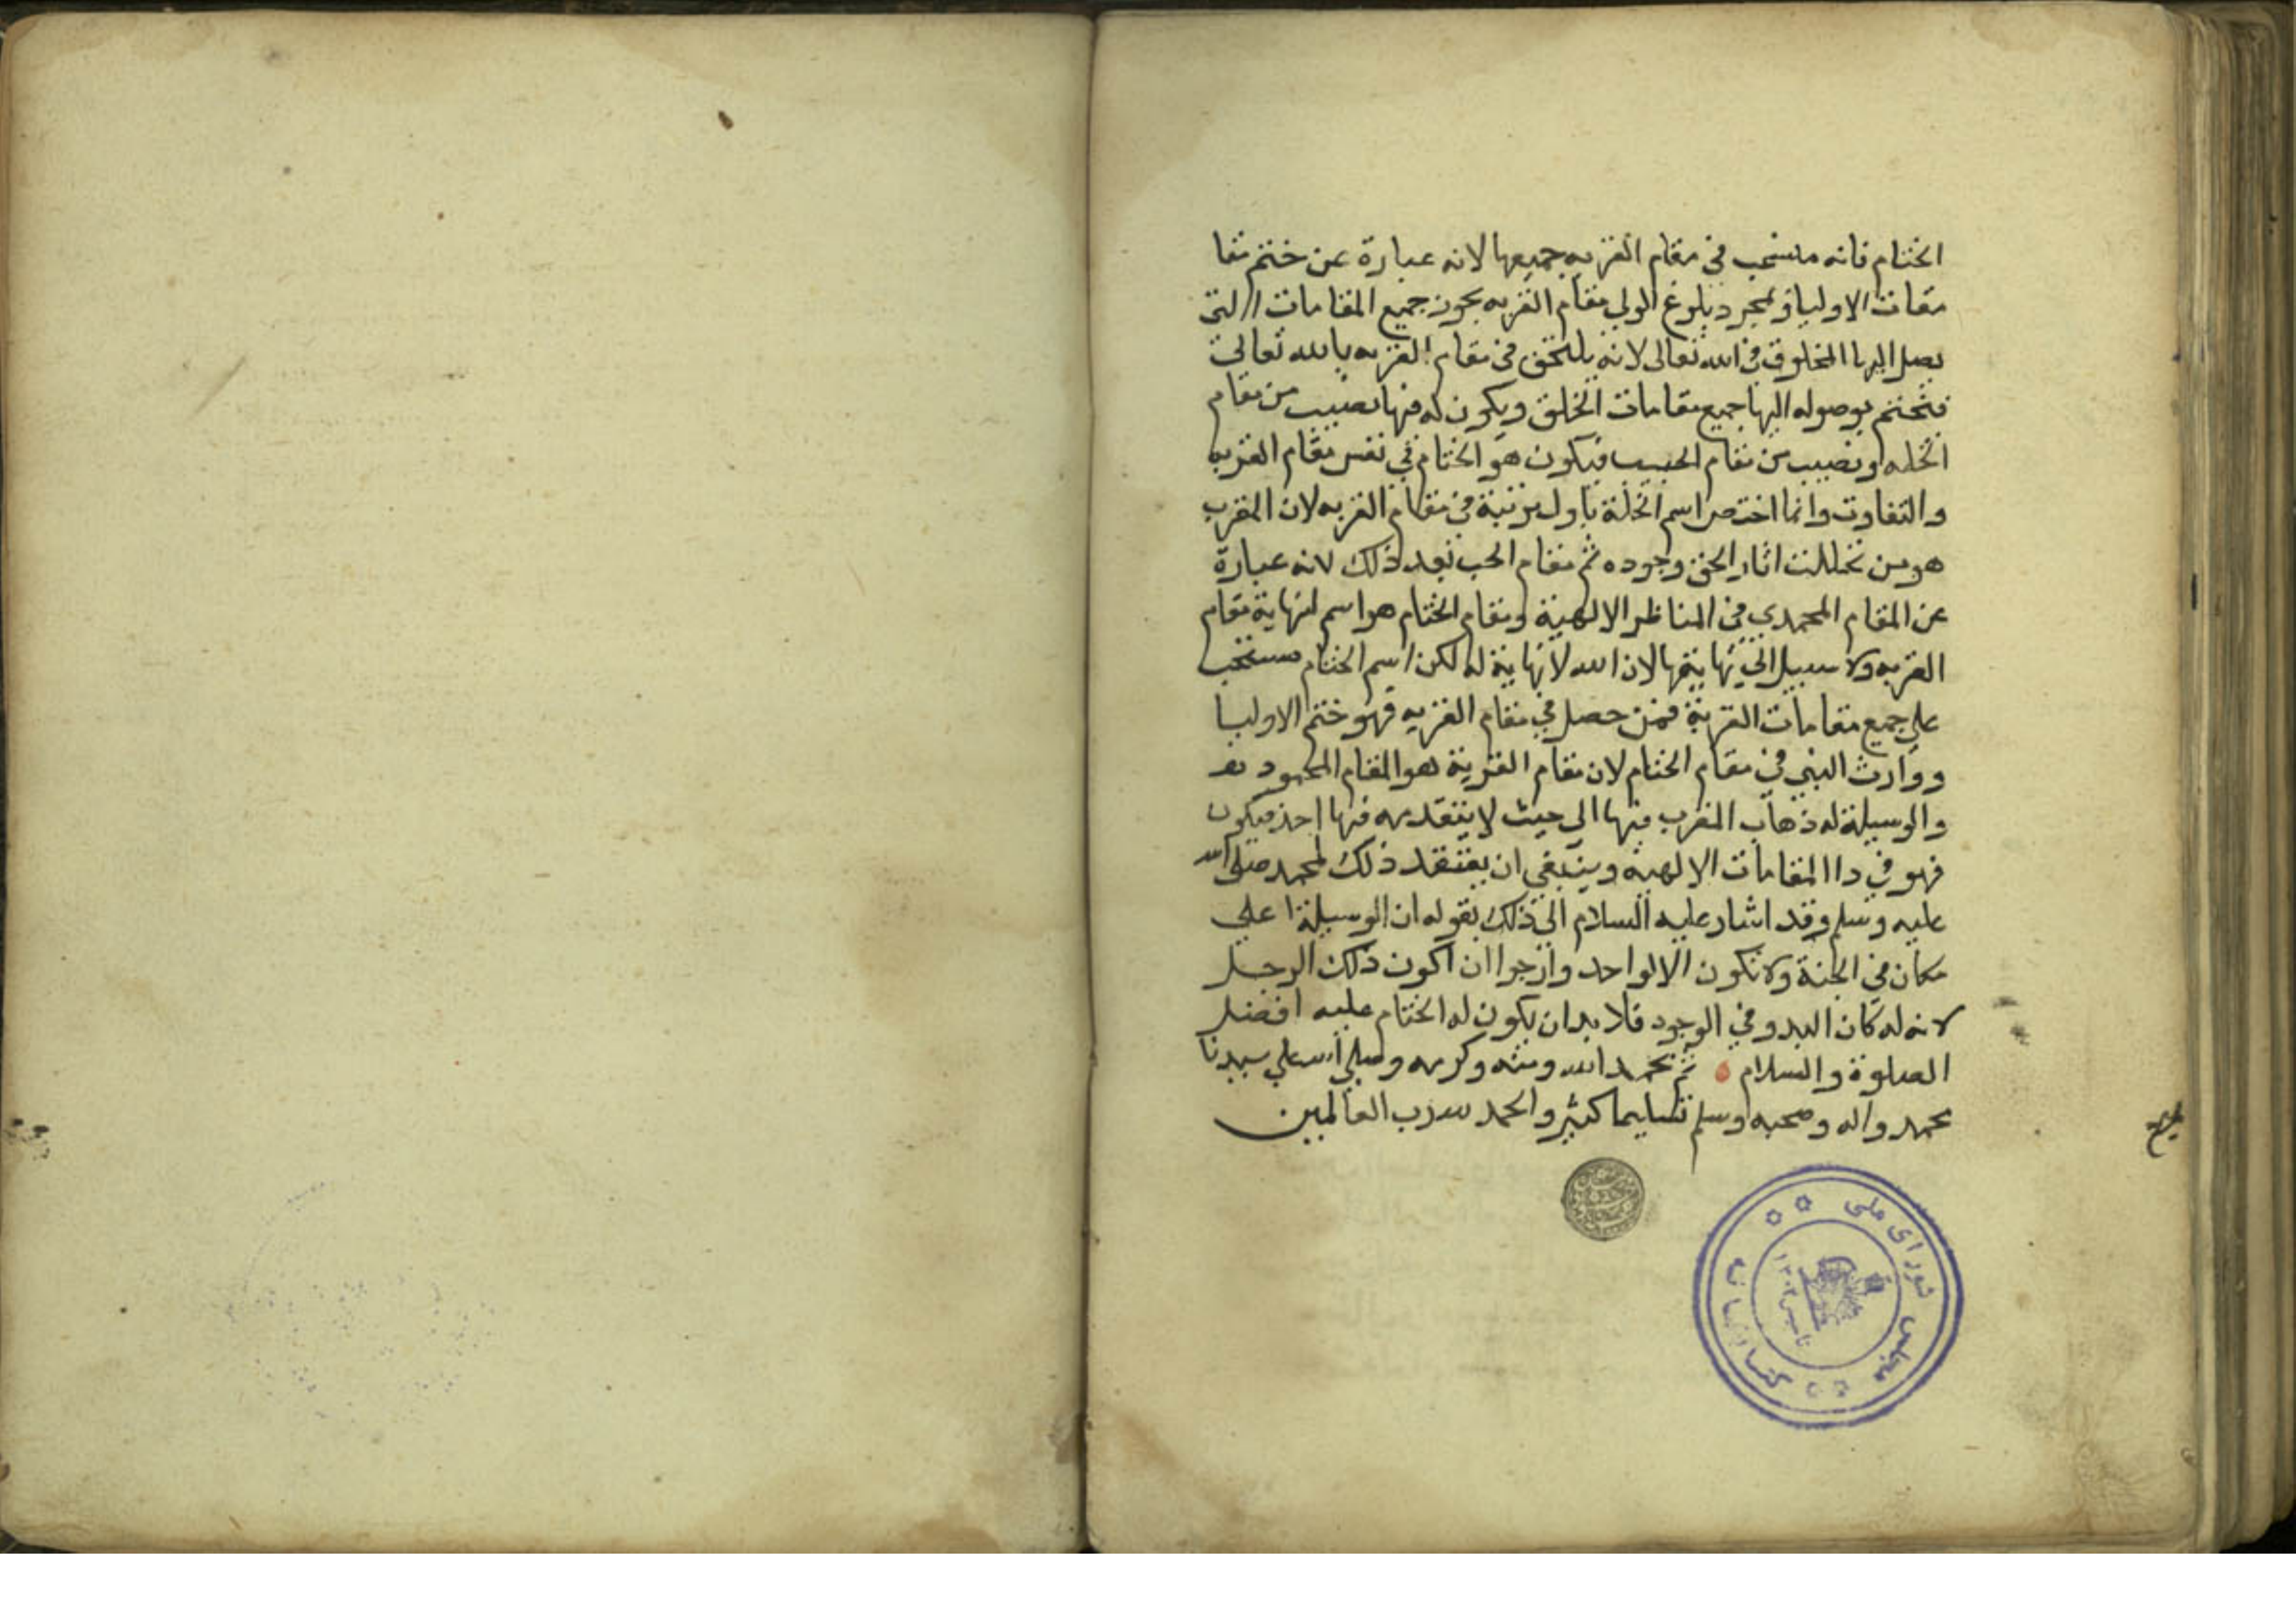 الختام فانه منسحب في مقام القربه جميعها لانه عبارة عن ختم مقا
مقات الاوليا وبمجرد بلوغ الولي مقام القربه يحوز جميع المقامات التي
يصل اليها المخلوق في الله تعالى لانه يلتحق في مقام القربه بالله تعالى
فتختم بوصوله اليها جميع مقامات الخلق ويكون له فيها نصيب من مقام
الخله ونصيب من مقام الحبيب فيكون هو الختام في نفس مقام القربه
والتفاوت وانما اختص اسم الخلة باول مرتبة في مقام القربه لان المقرب
هو من تخللت اثار الحق وجوده ثم مقام الحب بعد ذلك لانه عبارة
عن المقام المحمدي في المناظر الالهية ومقام الختام هو اسم لنهاية مقام
القربه ولا سبيل الى نهايتها لان الله لا نهاية له لكن اسم الختام منسحب
على جميع مقامات القربة فمن حصل في مقام القربه فهو ختم الاوليا
ووارث النبي في مقام الختام لان مقام القربة هو المقام المحمود
والوسيلة له ذهاب المقرب فيها الى حيث لا يتقدمه فيها احد فيكون
فهو في دا المقامات الالهيه وينبغي ان يعتقد ذلك لمحمد صلى الله
عليه وسلم وقد اشار عليه السلام الى ذلك بقوله ان الوسيلة اعلى
مكان في الجنة ولا تكون الا لواحد وارجوا ان اكون ذلك الرجل
لانه له كان البدو في الوجود فلا بد ان يكون له الختام عليه افضل
الصلوة والسلام ثم بحمد الله ومنه وكرمه وصلى الله على سيدنا
محمد واله وصحبه وسلم تسليما كثير والحمد لله رب العالمين
كتابخانه مجلس شورای ملی
تاسیس ۱۳۰۲